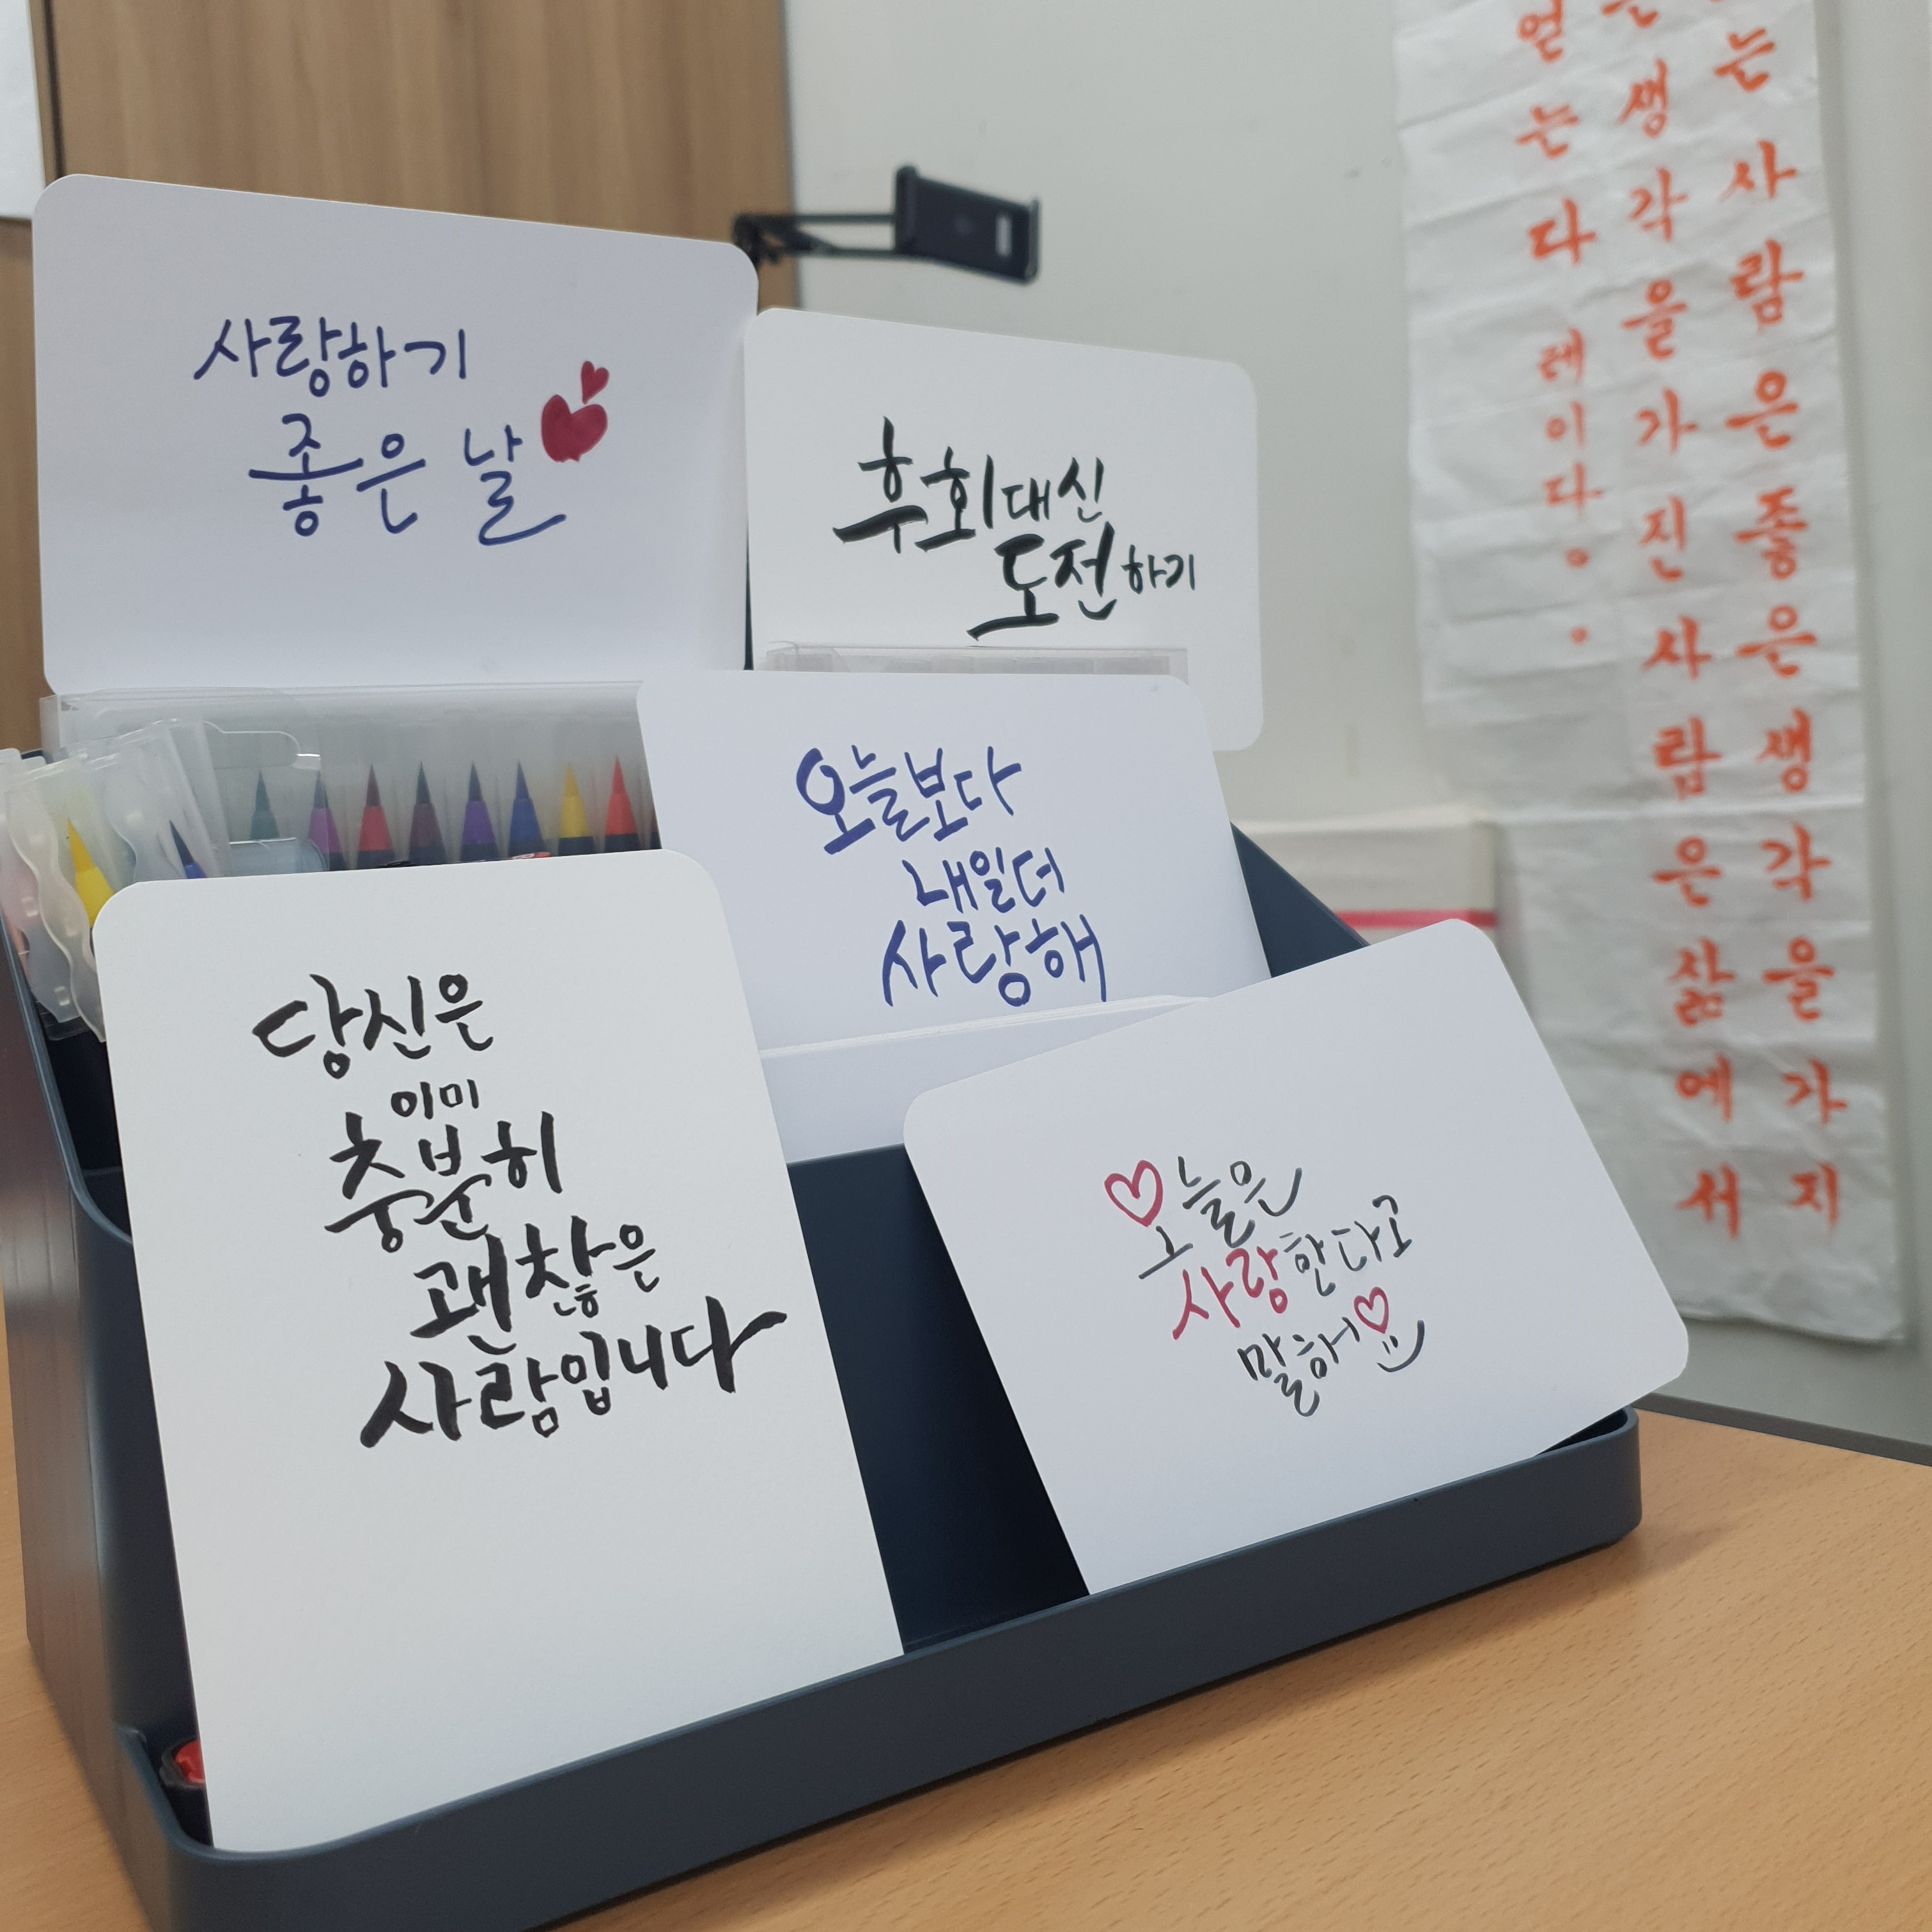 사랑하기
좋은 날
후회대신
도전하기
오늘보다
내일더
사랑해
당신은
이미
충분히
괜찮은
사람입니다
오늘은
사랑한다고
말해
는 사람은 좋은 생각을 가지
생각을 가진 사람은 삶에서
얻는다 레이다..